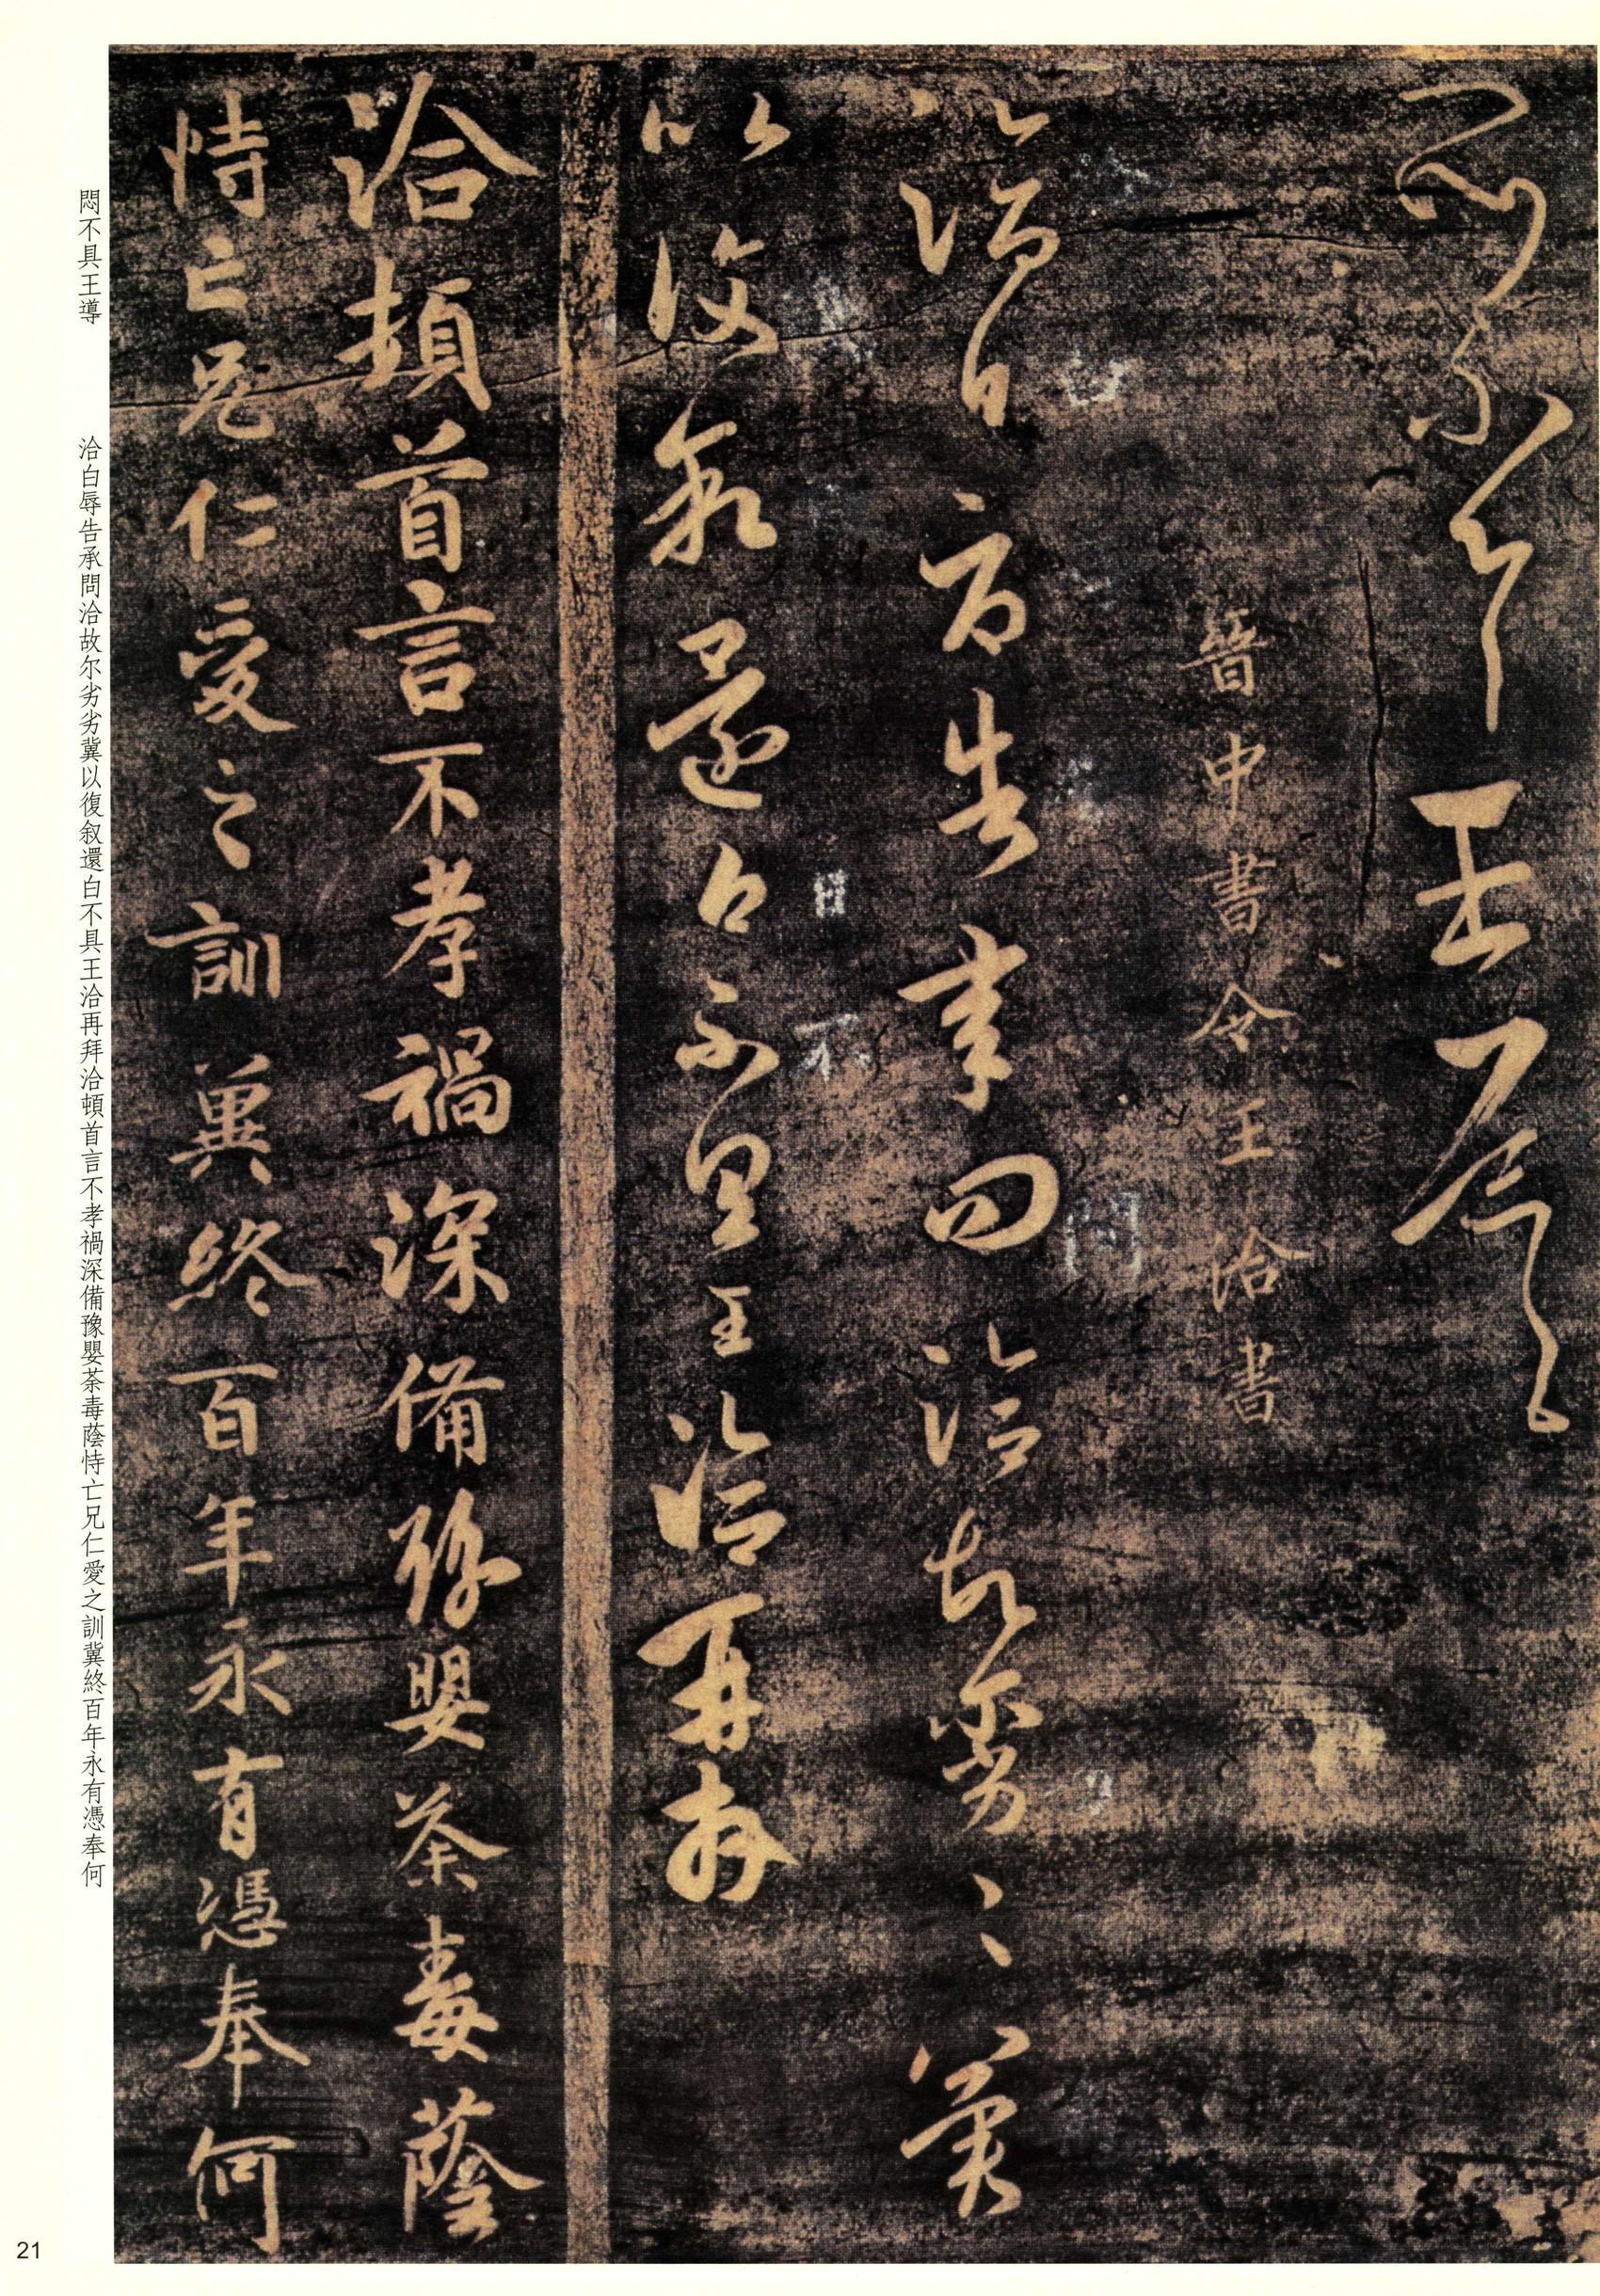 悶不具王導
晉中書令王洽書
洽白辱告承問洽故尔劣劣冀
以復叙還白不具王洽再拜
洽頓首言不孝禍深備豫嬰荼毒蔭
恃亡兄仁愛之訓冀終百年永有憑奉何
白
告
問
劣
日
不
悶不具王導
洽白辱告承問洽故尔劣劣冀以復叙還白不具王洽再拜洽頓首言不孝禍深備豫嬰荼毒蔭恃亡兄仁愛之訓冀終百年永有憑奉何
21